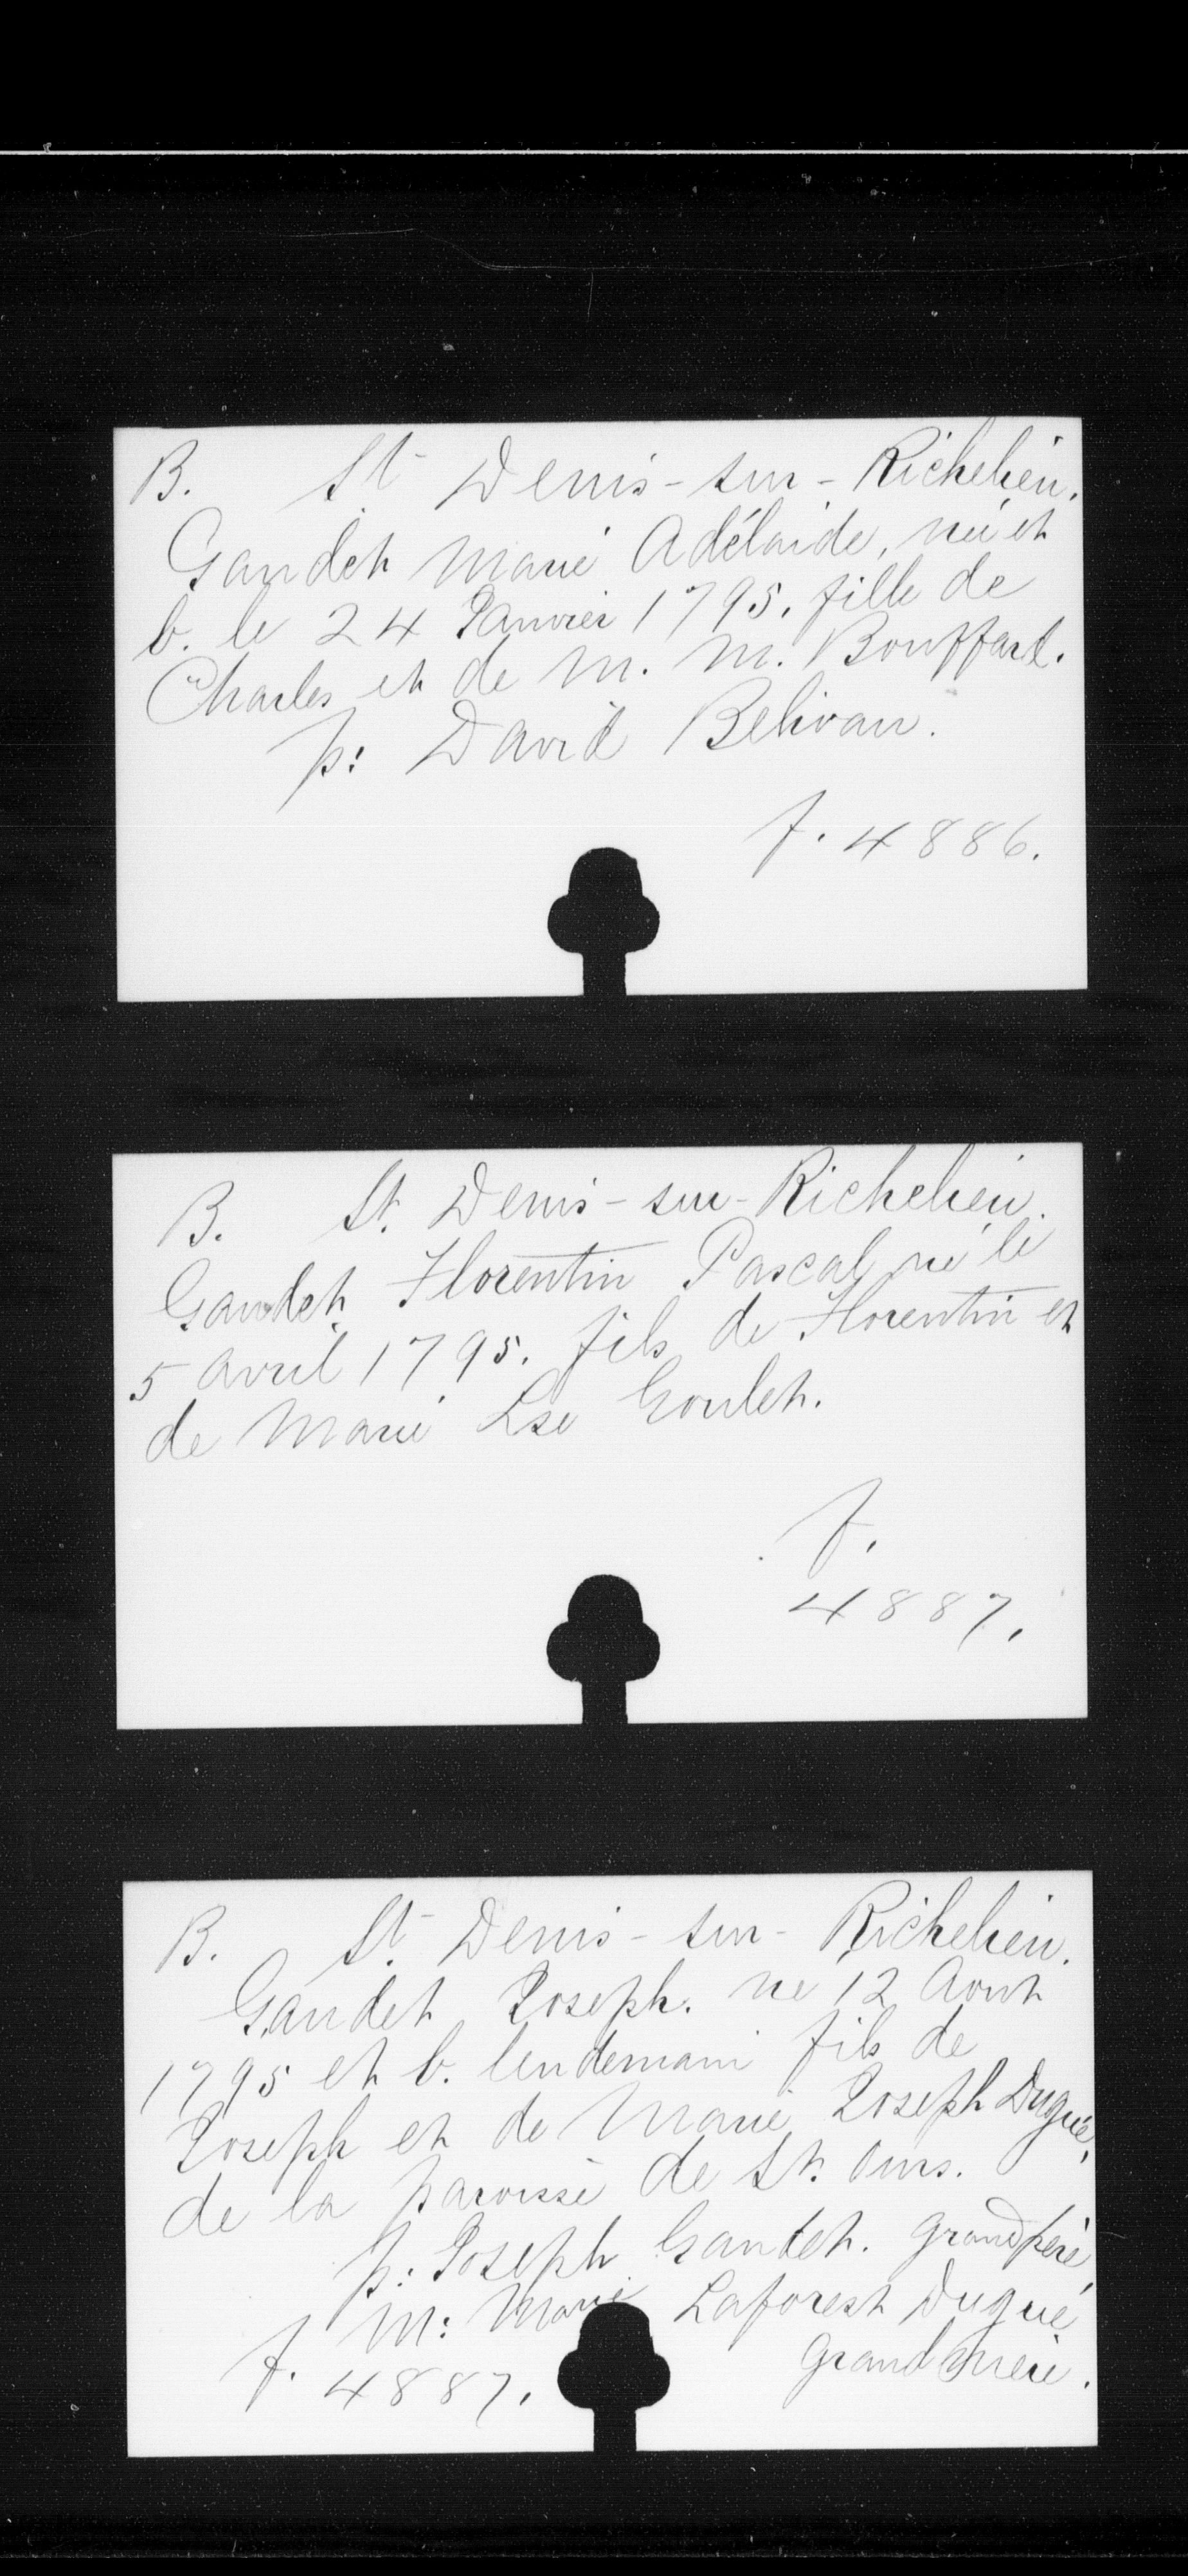 B. St Denis-sur-Richelieu.
Gaudet Marie Adélaide, née et
b. le 24 Janvier 1795. fille de
Charles et de M. M. Bouffard.
p: David Belivau.
f. 4886.
B. St. Denis-sur-Richelieu.
Gaudet Florentin Pascal né le
5 avril 1795. fils de Florentin et
de Marie Lse Goulet.
f.
4887.
B. St. Denis-sur-Richelieu.
Gaudet Joseph. né 12 Aout
1795 et b. lendemain fils de
Joseph et de Marie Joseph Dugué,
de la paroisse de St. Ours.
p: Joseph Gaudet. grandpère,
M: Marie Laforest Dugué
grandmère.
f. 4887.